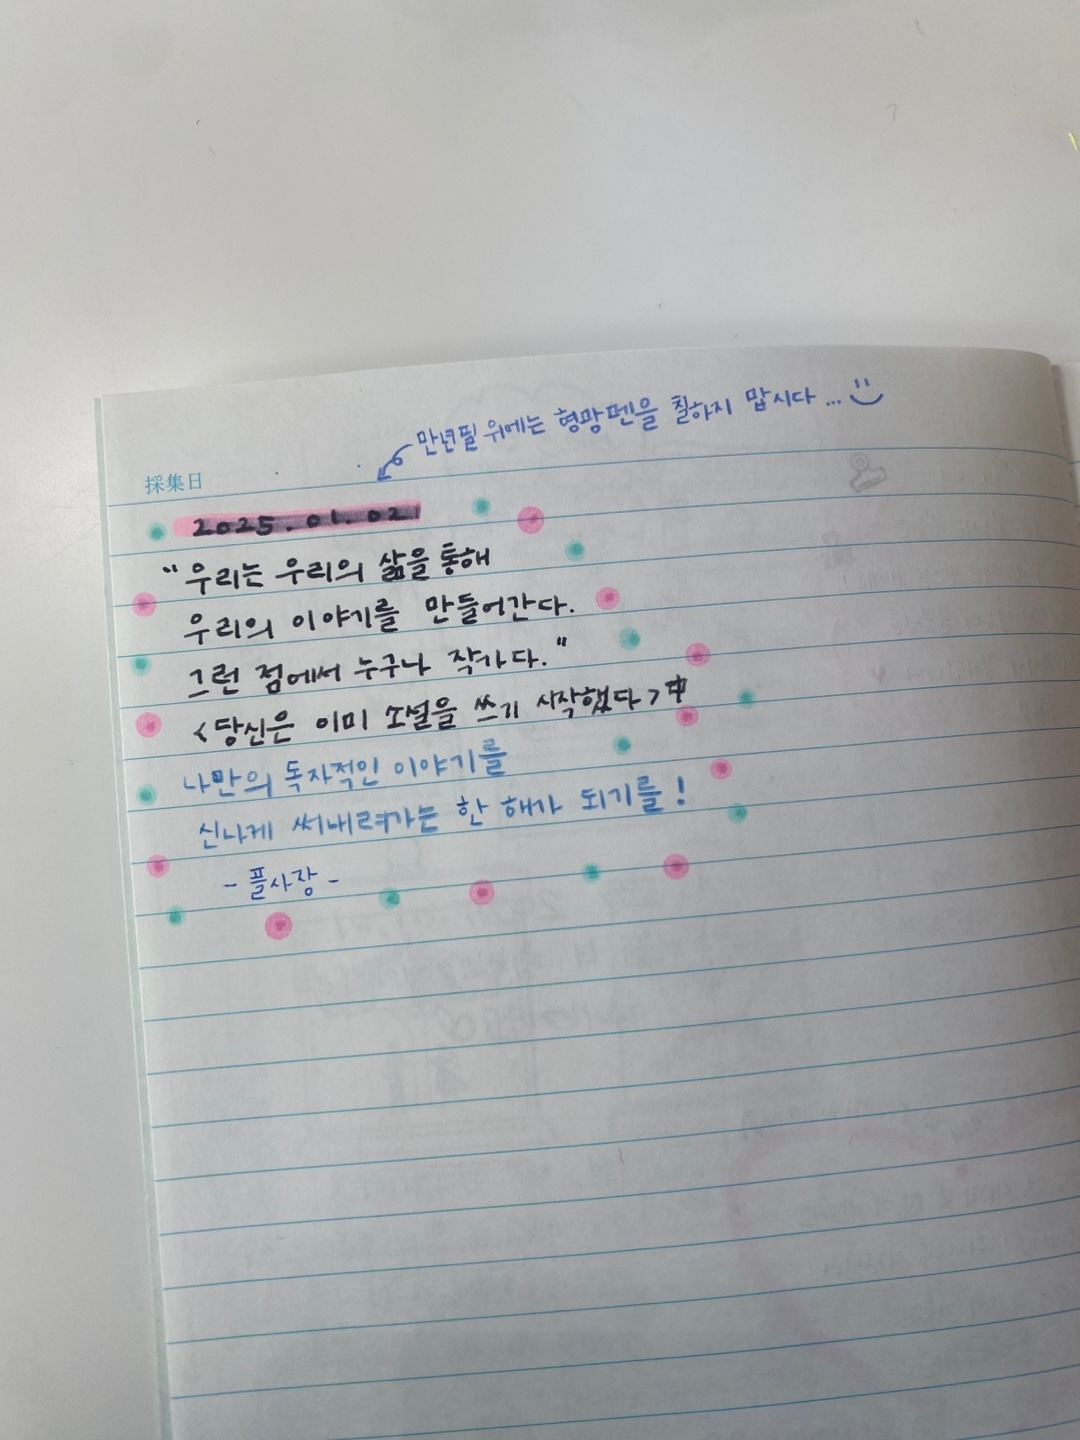 만년필 위에는 형광펜을 칠하지 맙시다...
採集日
2025.01.02
"우리는 우리의 삶을 통해
우리의 이야기를 만들어간다.
그런 점에서 누구나 작가다."
<당신은 이미 소설을 쓰기 시작했다> 中
나만의 독자적인 이야기를
신나게 써내려가는 한 해가 되기를!
- 플사장 -